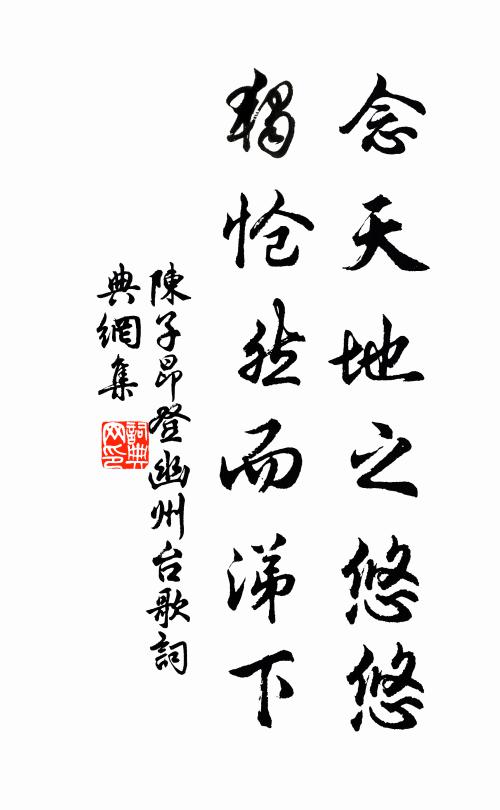 念天地之悠悠
獨怆然而涕下
陳子昂登幽州台歌詞
典網集
詞典網印